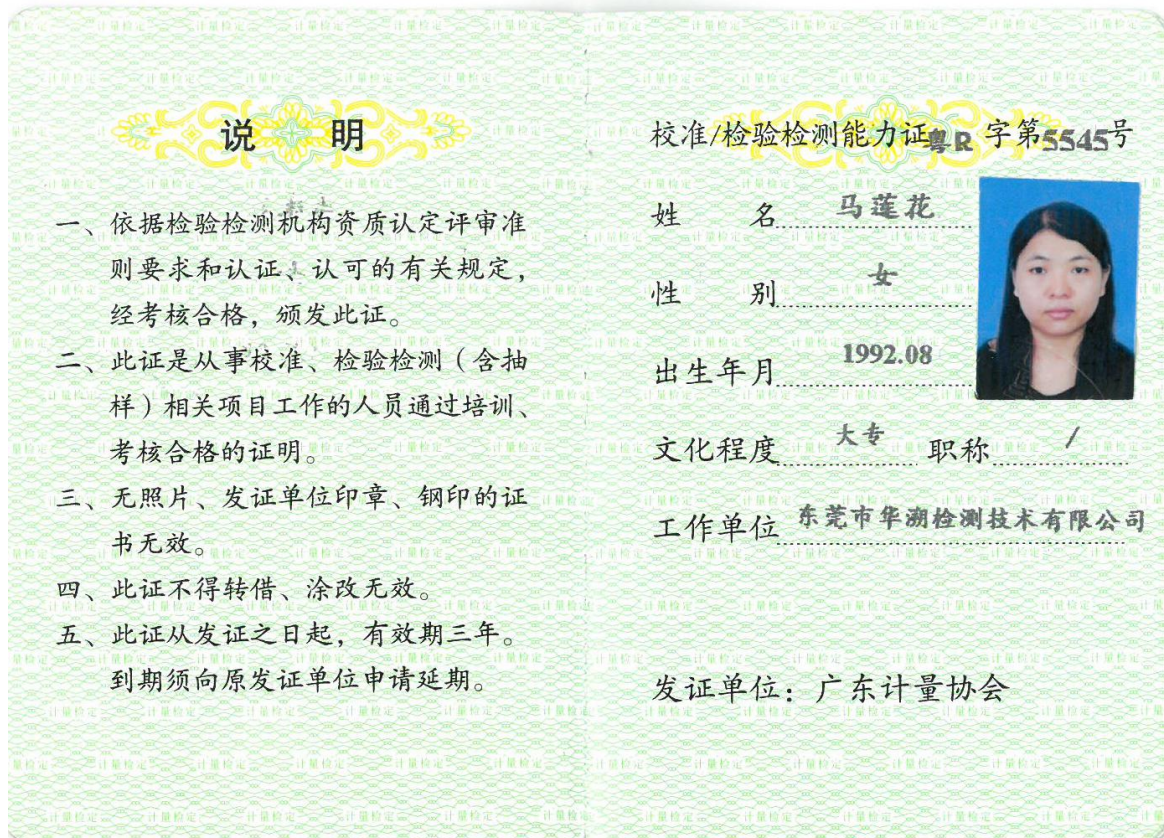 说 明
一、依据检验检测机构资质认定评审准
则要求和认证、认可的有关规定，
经考核合格，颁发此证。
二、此证是从事校准、检验检测（含抽
样）相关项目工作的人员通过培训、
考核合格的证明。
三、无照片、发证单位印章、钢印的证
书无效。
四、此证不得转借、涂改无效。
五、此证从发证之日起，有效期三年。
到期须向原发证单位申请延期。
校准/检验检测能力证粤R 字第5545号
姓 名 马莲花
性 别 女
出生年月 1992.08
文化程度 大专 职称 /
工作单位 东莞市华溯检测技术有限公司
发证单位：广东计量协会